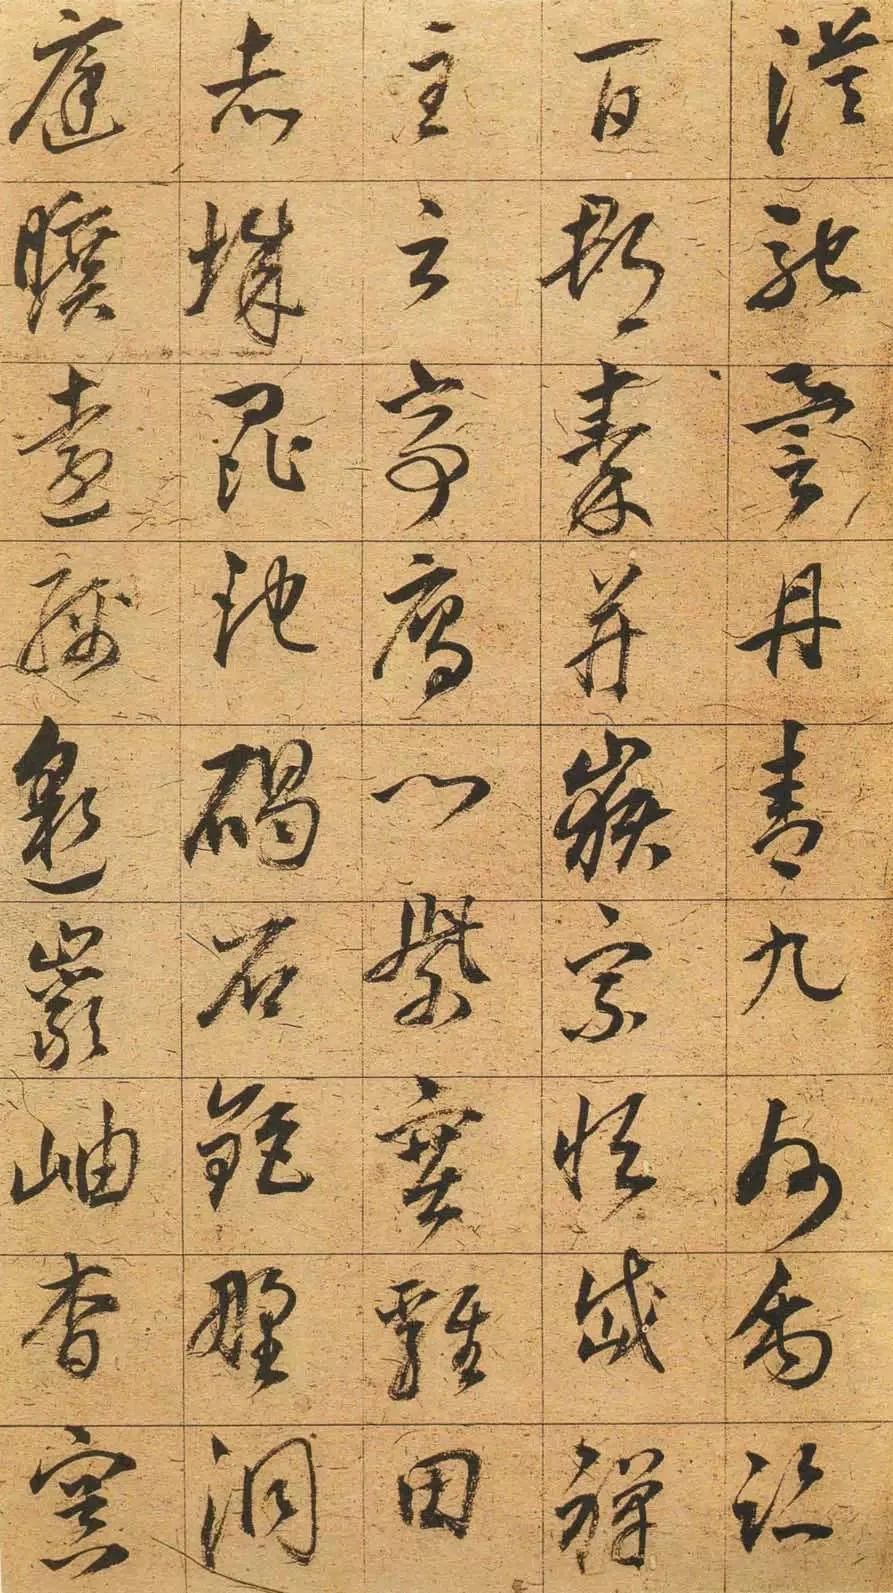 漠馳譽丹青九州禹跡
百郡秦并嶽宗恒岱禪
主云亭鴈門紫塞雞田
赤城昆池碣石鉅野洞
庭曠遠綿邈巖岫杳冥